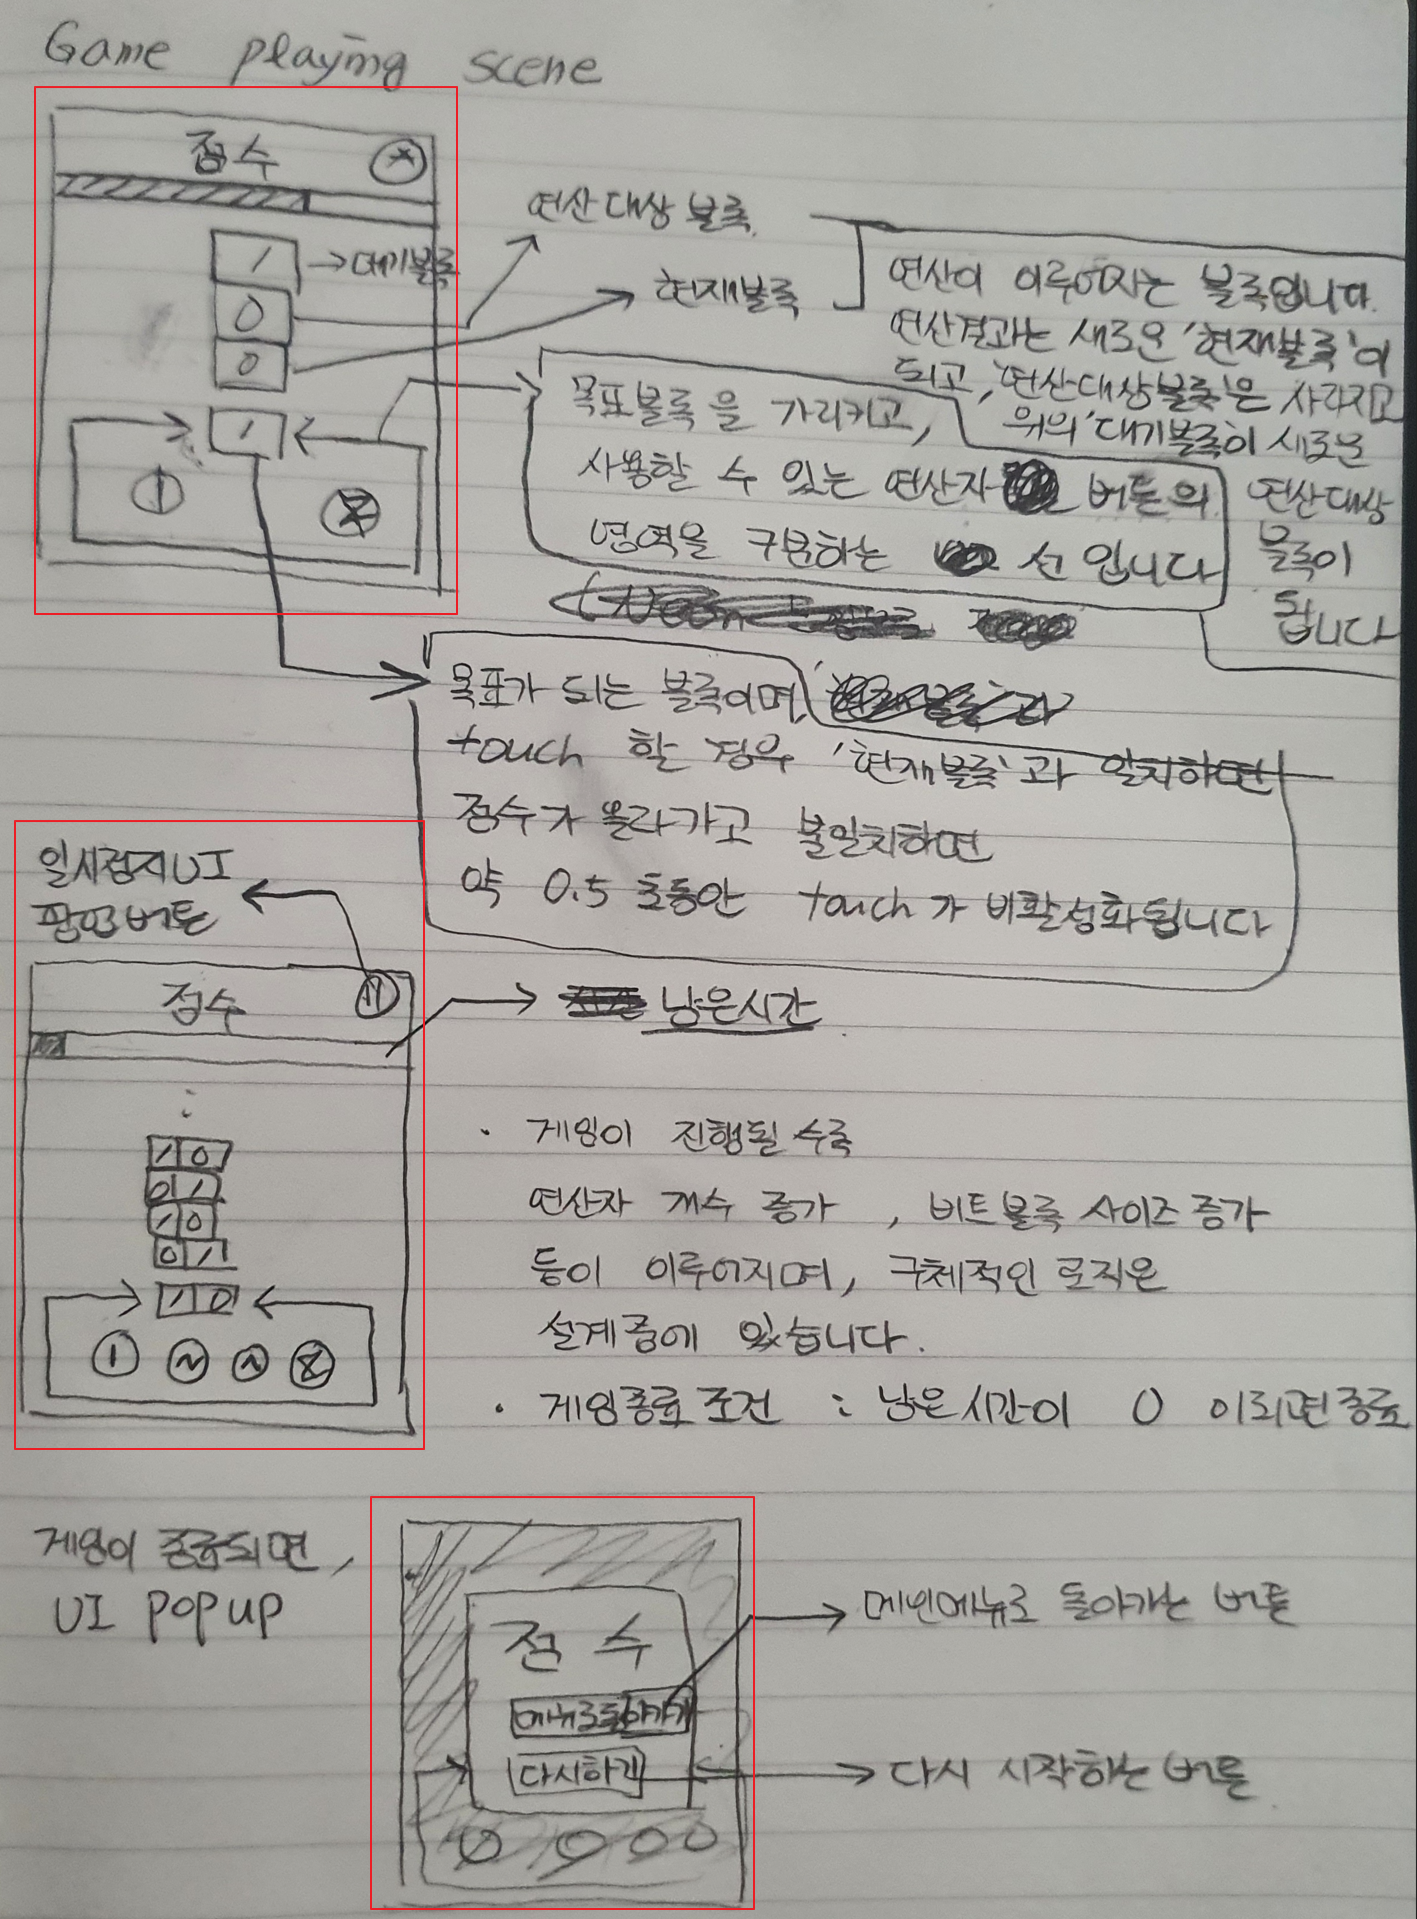 Game playing scene
점수
1 → 대기블록
0
0
1
연산대상 블록
현재블록
연산이 이루어지는 블록입니다.
연산결과는 새로운 '현재블록'이
되고, '연산대상블록'은 사라지고
위의 '대기블록'이 새로운
연산대상
블록이
됩니다
목표블록을 가리키고,
사용할 수 있는 연산자 버튼의
영역을 구분하는 선입니다
목표가 되는 블록이며,
touch 할 경우 '현재블록'과 일치하면
점수가 올라가고 불일치하면
약 0.5 초동안 touch가 비활성화됩니다
일시정지UI
팝업버튼
점수
남은시간
:
1 0
0 1
1 0
0 1
1 0
· 게임이 진행될 수록
연산자 개수 증가, 비트블록 사이즈 증가
등이 이루어지며, 구체적인 로직은
설계중에 있습니다.
· 게임종료 조건 : 남은시간이 0 이되면종료
게임이 종료되면,
UI POPUP
점수
메뉴로돌아가기
다시하기
메인메뉴로 돌아가는 버튼
다시 시작하는 버튼